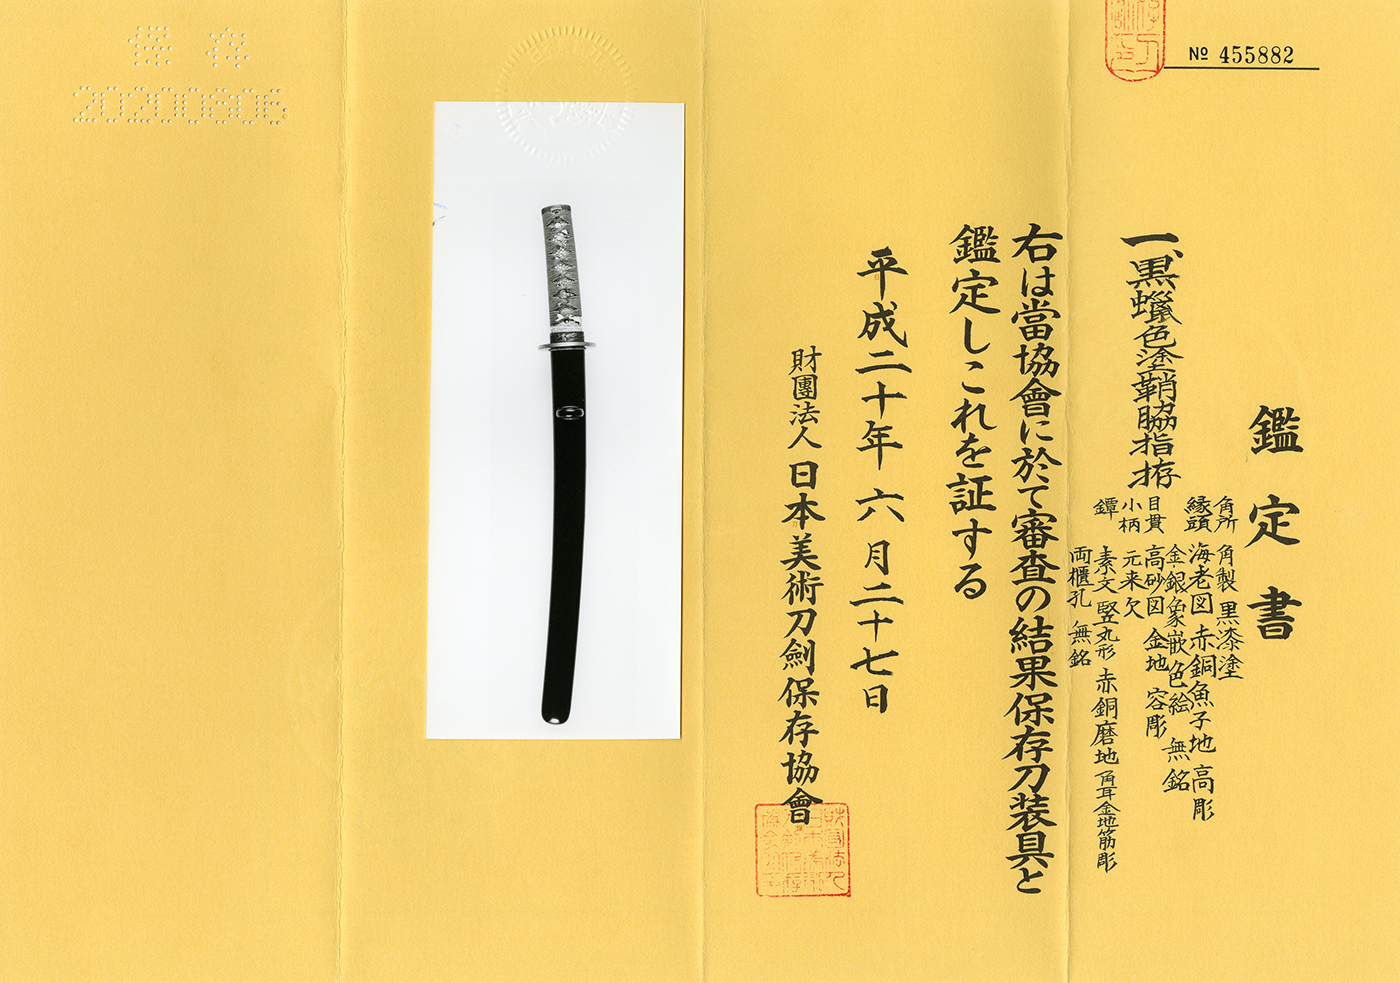 № 455882
鑑定書
一、黒蠟色塗鞘脇指拵
角所 角製 黒漆塗
縁頭 海老図 赤銅魚子地 高彫
金銀象嵌色絵 無銘
目貫 高砂図 金地 容彫
小柄 元来欠
鐔 素文 竪丸形 赤銅磨地 角耳金地筋彫
両櫃孔 無銘
右は當協會に於て審査の結果保存刀装具と
鑑定しこれを証する
平成二十年 六月二十七日
財團法人 日本美術刀劍保存協會
保存
20200806